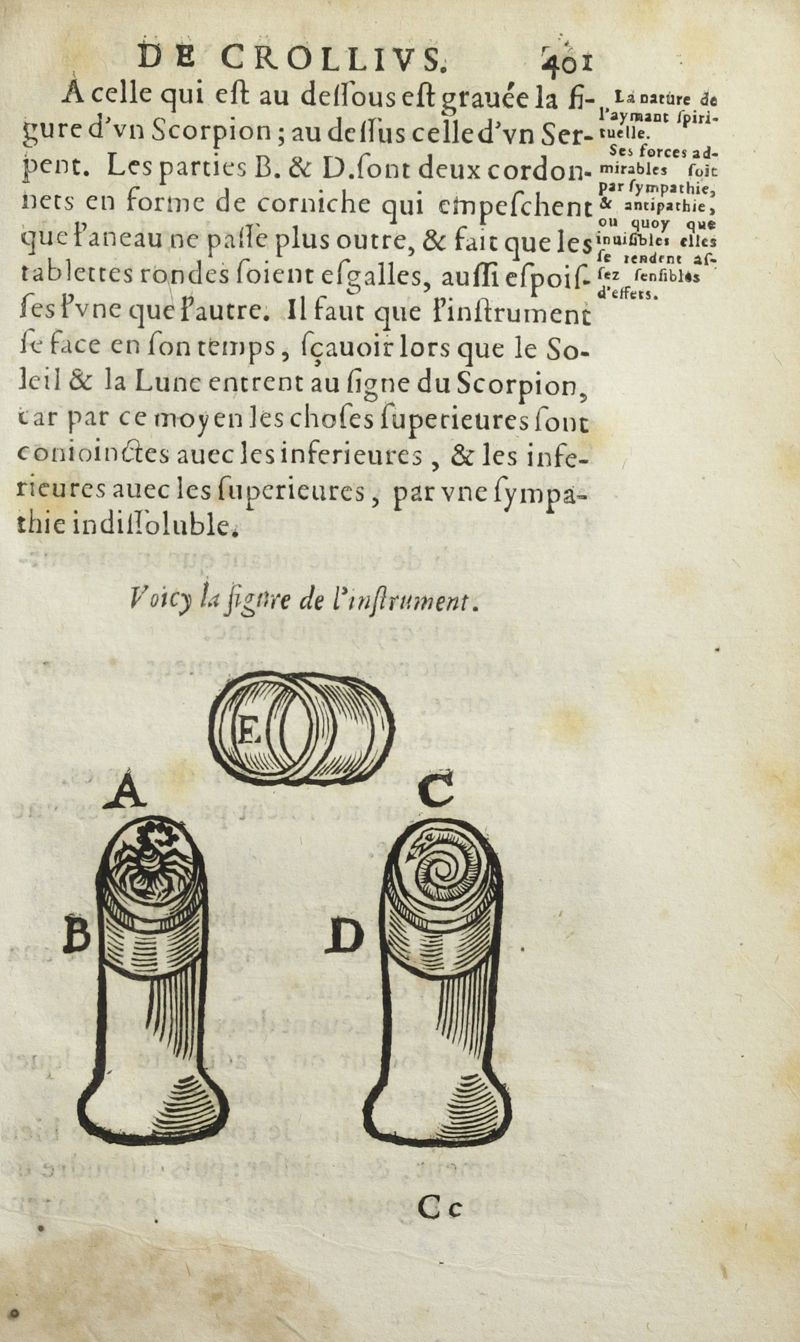 DE CROLLIVS. 401
A celle qui eſt au deſſous eſt grauée la fi-
gure d'vn Scorpion ; au deſſus celle d'vn Ser-
pent. Les parties B. & D. ſont deux cordon-
nets en forme de corniche qui empeſchent
que l'aneau ne paſſe plus outre, & fait que les
tablettes rondes ſoient eſgalles, auſſi eſpoiſ-
ſes l'vne que l'autre. Il faut que l'inſtrument
ſe face en ſon temps, ſçauoir lors que le So-
leil & la Lune entrent au ſigne du Scorpion,
car par ce moyen les choſes ſuperieures ſont
conioinctes auec les inferieures, & les infe-
rieures auec les ſuperieures, par vne ſympa-
thie indiſſoluble.
La nature de
l'aymant ſpiri-
tuelle.
Ses forces ad-
mirables ſoit
par ſympathie,
& antipathie,
ou quoy que
inuiſibles elles
ſe rendent aſ-
ſez ſenſibles
d'effets.
Voicy la figure de l'inſtrument.
E
A C
B D
C c